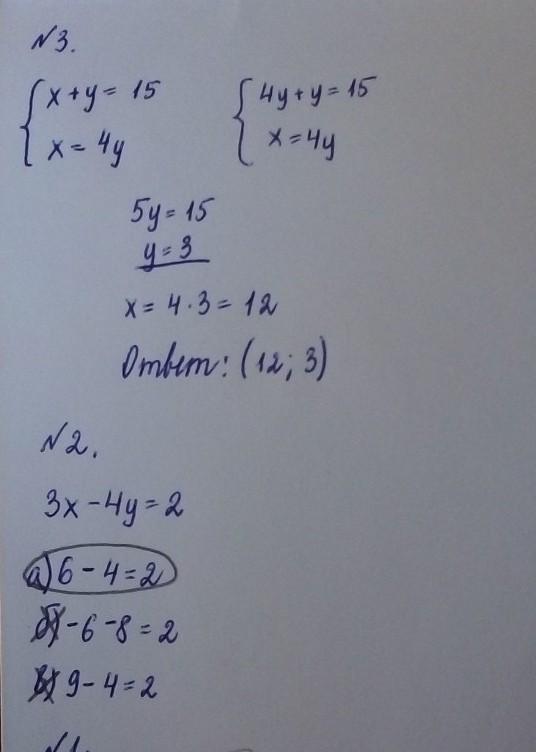 №3.
x+y=15 4y+y=15
x=4y x=4y
5y=15
y=3
x=4·3=12
Ответ: (12; 3)
№2.
3x-4y=2
а) 6-4=2
б) -6-8=2
в) 9-4=2
№1.